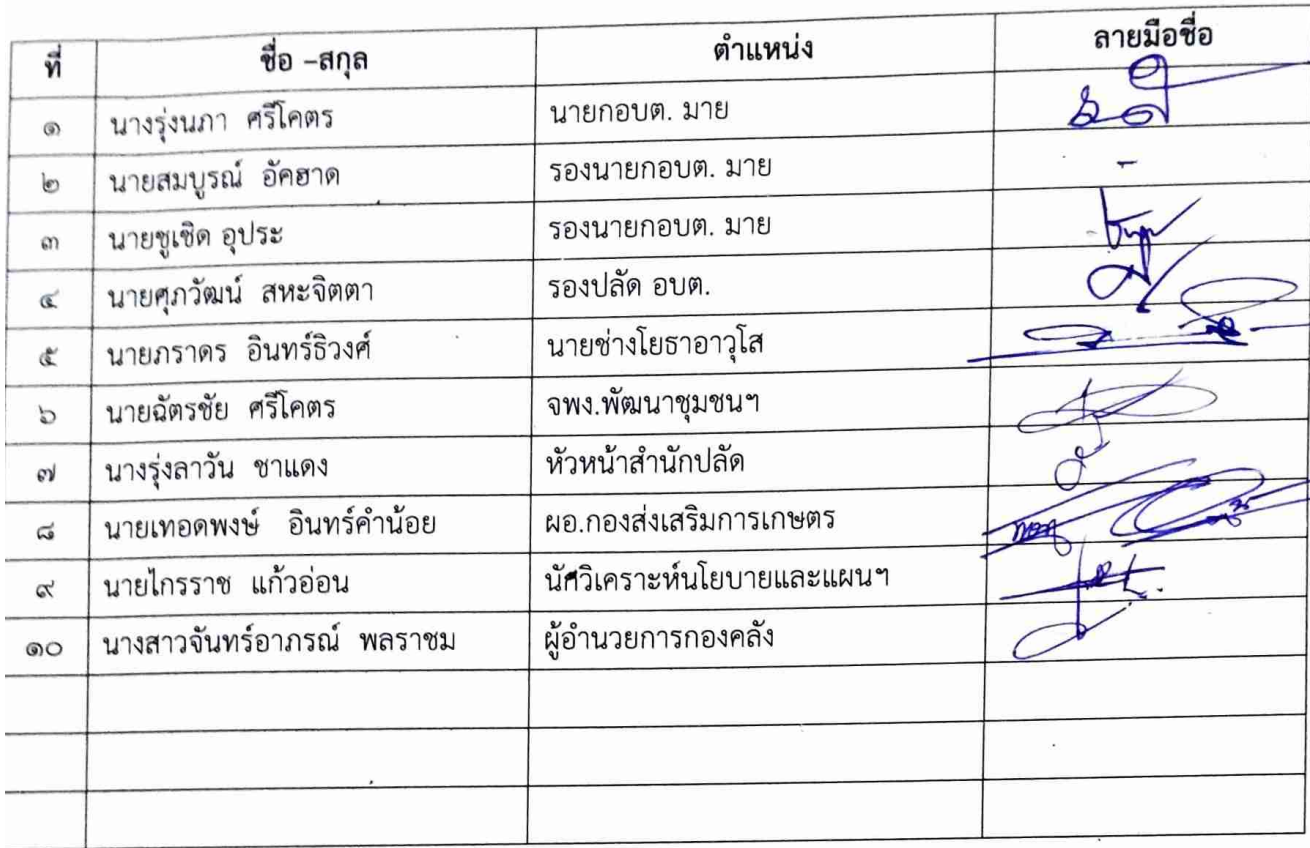 ที่ ชื่อ –สกุล ตำแหน่ง ลายมือชื่อ
๑ นางรุ่งนภา ศรีโคตร นายกอบต. มาย
๒ นายสมบูรณ์ อัคฮาด รองนายกอบต. มาย -
๓ นายชูเชิด อุประ รองนายกอบต. มาย
๔ นายศุภวัฒน์ สหะจิตตา รองปลัด อบต.
๕ นายภราดร อินทร์ธิวงศ์ นายช่างโยธาอาวุโส
๖ นายฉัตรชัย ศรีโคตร จพง.พัฒนาชุมชนฯ
๗ นางรุ่งลาวัน ชาแดง หัวหน้าสำนักปลัด
๘ นายเทอดพงษ์ อินทร์คำน้อย ผอ.กองส่งเสริมการเกษตร
๙ นายไกรราช แก้วอ่อน นักวิเคราะห์นโยบายและแผนฯ
๑๐ นางสาวจันทร์อาภรณ์ พลราชม ผู้อำนวยการกองคลัง